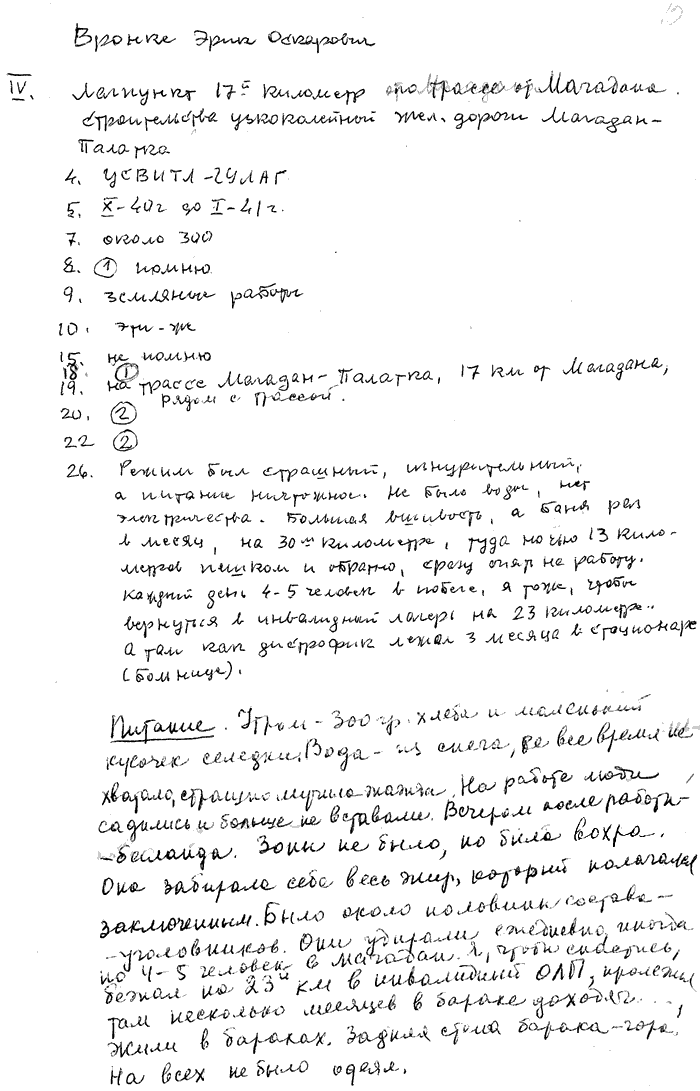 Вронке Эрик Оскарович
IV. Лагпункт 17й километр по трассе от Магадана.
строительства узкоколейный жел. дороги Магадан-
Палатка
4. УСВИТЛ-ГУЛАГ
5. X-40г до I-41г.
7. около 300
8. ① помню
9. земляные работы
10. эти-же
15. не помню
18. ①
19. на трассе Магадан-Палатка, 17 км от Магадана,
рядом с трассой.
20. ②
22 ②
26. Режим был страшный, изнурительный,
а питание ничтожное. Не было воды, нет
электричества. Большая вшивость, а баня раз
в месяц, на 30ом километре, туда ночью 13 кило-
метров пешком и обратно, сразу опять на работу.
каждый день 4-5 человек в побеге, я тоже, чтобы
вернуться в инвалидный лагерь на 23 километре.
а там как дистрофик лежал 3 месяца в стационаре
(больнице).
Питание. Утром - 300 гр. хлеба и маленький
кусочек селедки. Вода - из снега, ее все время не
хватало, страшно мучила жажда. На работе люди
садились и больше не вставали. Вечером после работы-
-баланда. Зоны не было, но была вохра.
Она забирала себе весь жир, который полагался
заключенным. Было около половины состава-
-уголовников. Они удирали ежедневно, иногда
по 4-5 человек в Магадан. Я, чтобы спастись,
бежал на 23й км в инвалидный ОЛП, пролежал
там несколько месяцев в бараке доходяг...,
Жили в бараках. Задняя стена барака-гора.
На всех не было одеял.